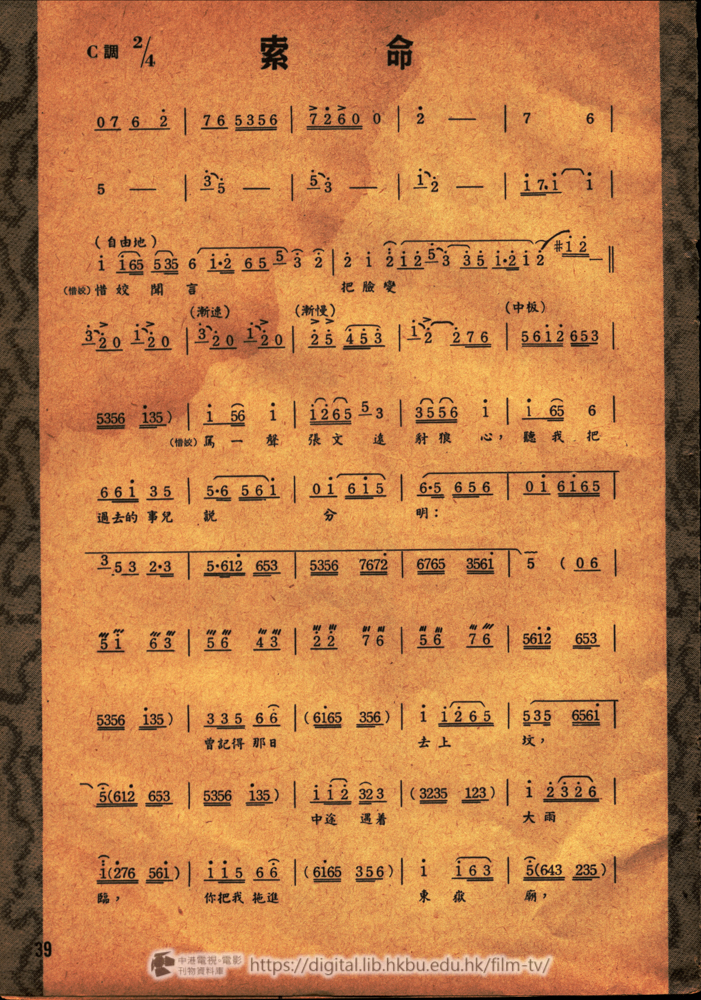 C調 2/4 索命
0 7 6 2̇ | 7 6 5 3 5 6 | 7 2̇ 6 0 0 | 2̇ — | 7 6 |
5 — | 3̇ 5̇ — | 5̇ 3̇ — | 1̇ 2̇ — | 1̇ 7. 1̇ 1̇ |
(自由地)
1̇ 1̇65 535 6 1̇·2̇ 65 5̇ 3̇ 2̇ | 2̇ 1̇ 2̇ 1̇ 2̇ 5̇ 3̇ 3̇5̇ 1̇·2̇ 1̇ 2̇ #1̇ 2̇ — ‖
(惜姣)惜姣聞言 把臉變
(漸速) (漸慢) (中板)
3̇ 2̇0 1̇ 2̇0 | 3̇ 2̇0 1̇ 2̇0 | 2̇5̇ 4̇5̇3̇ | 1̇ 2̇ 2̇76 | 561̇2̇ 653 |
5356 1̇35) | 1̇ 56 1̇ | 1̇2̇65 5 3 | 3556 1̇ | 1̇ 65 6 |
(惜姣)罵一聲 張文遠 豺狼心，聽我把
661̇ 35 | 5·6 561̇ | 01̇ 61̇5 | 6·5 656 | 01̇ 61̇65 |
過去的事兒 說 分 明：
3 53 2·3 | 5·612̇ 653 | 5356 7672̇ | 6765 3561̇ | 5 (06 |
51̇ 63 | 56 43 | 2̇2̇ 76 | 56 76 | 561̇2̇ 653 |
5356 1̇35) | 335 66 | (61̇65 356) | 1̇ 1̇2̇65 | 535 6561̇ |
曾記得那日 去上 坟，
5(612̇ 653 | 5356 1̇35) | 1̇1̇2̇ 323 | (3235 123) | 1̇ 2̇326 |
中途遇着 大雨
1̇(2̇76 561̇) | 1̇1̇5 66 | (61̇65 356) | 1̇ 1̇63 | 5(643 235) |
臨， 你把我拖進 東嶽 廟，
39
中港電視·電影
刊物資料庫
https://digital.lib.hkbu.edu.hk/film-tv/